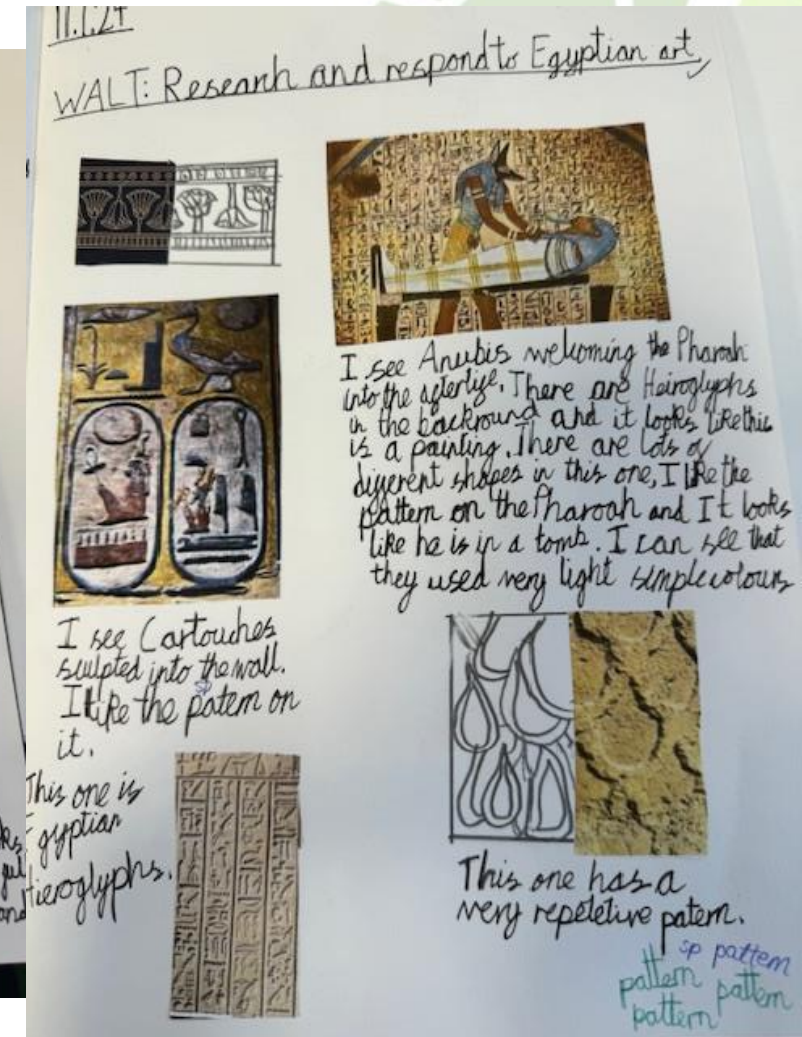 11.1.24
WALT: Research and respond to Egyptian art
I see Anubis welcoming the Pharoah
into the afterlife. There are Heiroglyphs
in the backround and it looks like this
is a painting. There are lots of
different shapes in this one, I like the
pattern on the Pharoah and It looks
like he is in a tomb. I can see that
they used very light simple colours
I see Cartouches
sculpted into the wall.
sp
I like the patern on
it.
This one is
Egyptian
Hieroglyphs.
This one has a
very repetetive patern.
sp pattern
pattern pattern
pattern